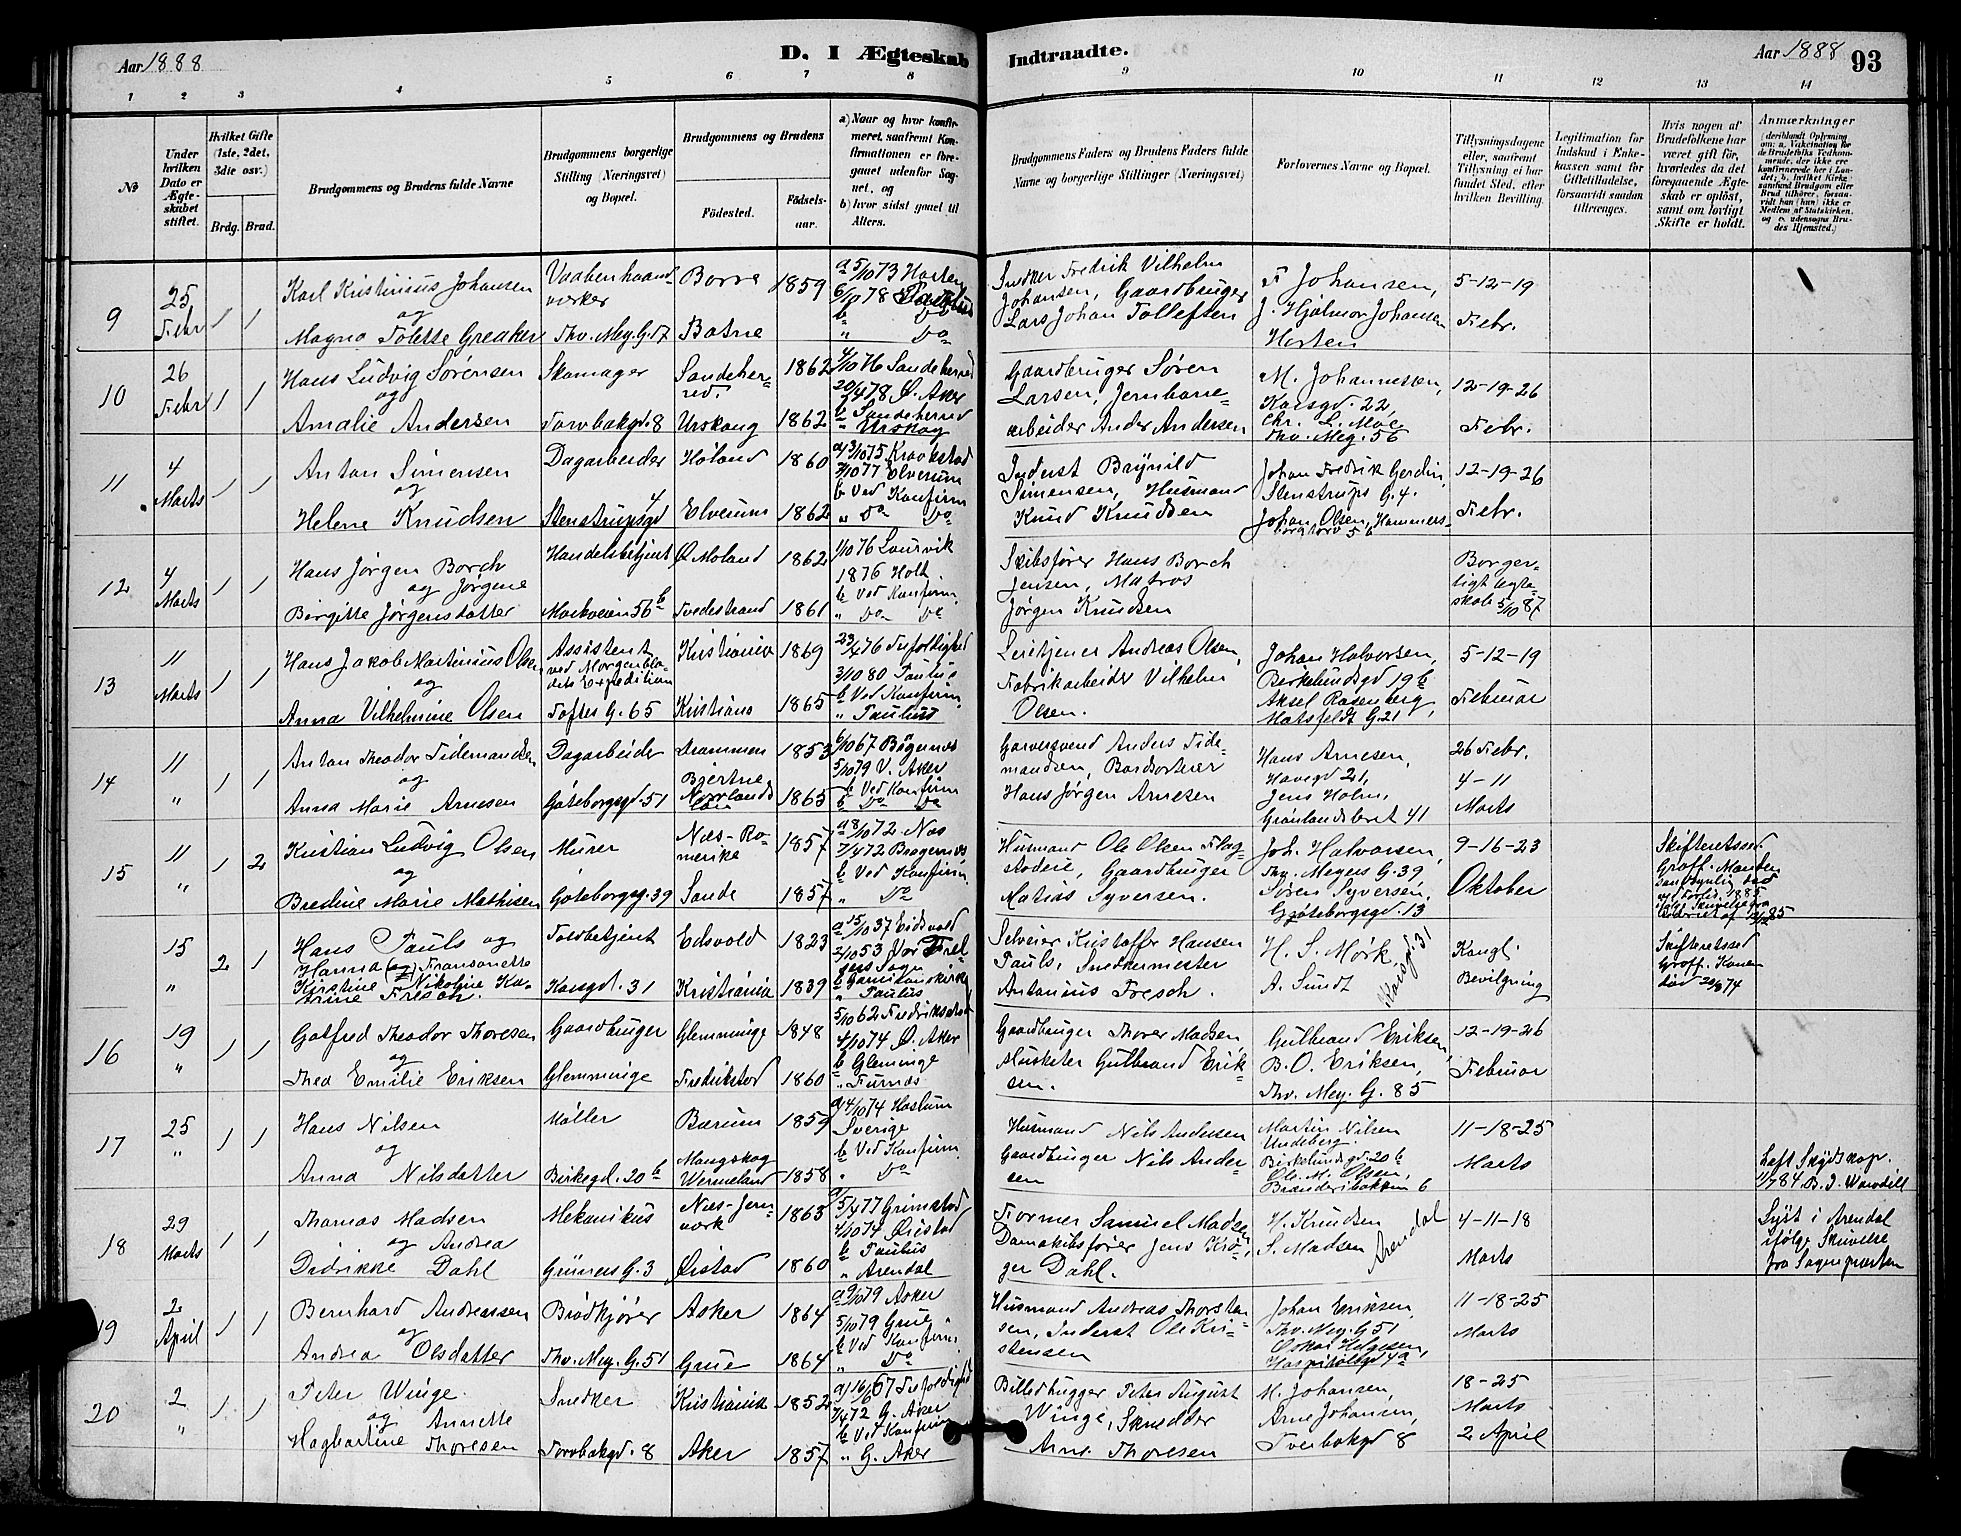 Aar 1888
D. I Ægteskab
Indtraadte.
Aar 1888
93
1 2 3 4 5 6 7 8 9 10 11 12 13 14
No
Under hvilken Dato er Ægteskabet stiftet.
Hvilket Gifte (1ste, 2det, 3die osv.)
Brdg.
Brud.
Brudgommens og Brudens fulde Navne
Brudgommens borgerlige Stilling (Næringsvei) og Bopæl.
Brudgommens og Brudens
Fødested.
Fødsels-aar.
a) Naar og hvor konfirmeret, saafremt Konfirmationen er foregaaet udenfor Sognet, og
b) hvor sidst gaaet til Alters.
Brudgommens Faders og Brudens Faders fulde Navne og borgerlige Stillinger (Næringsvei)
Forlovernes Navne og Bopæl.
Tillysningsdagene eller, saafremt Tillysning ei har fundet Sted, efter hvilken Bevilling.
Legitimation for Indskud i Enkekassen samt for Giftetilladelse, forsaavidt saadan tiltrænges.
Hvis nogen af Brudefolkene har været gift før, hvorledes da det foregaaende Ægteskab er opløst, samt om lovligt Skifte er holdt.
Anmærkninger
9
25 Febr
1 1
Karl Kristinius Johansen
og
Magna Tolette Greaker
Vaabenhaand-
verker
Thv. Mey. G. 17
Borre
Botne
1859
a 5/10 73 Horten
6/10 78 Paulus
b Do
" Do
Snedker Fredrik Vilhelm
Johansen, Gaardbruger
Lars Johan Tollefsen
F Johansen,
J. Hjalmar Johansen
Horten
5-12-19
Febr.
10
26 Febr
1 1
Hans Ludvig Sørensen
og
Amalie Andersen
Skomager
Torvbakgd. 8
Sandeher-
red.
Urskoug
1862
1862
Sandeherred
Ø. Aker
b Sandeherred
" Urskog
Gaardbruger Søren
Larsen, Jernbane-
arbeider Ander Andersen
M. Johannessen,
Korsgd. 22,
Chr. L. Moe
Thv. Meg. 56
12-19-26
Febr.
11
4 Marts
1 1
Anton Simensen
og
Helene Knudsen
Dagarbeider
Stenstrupsgd 4
Høland
Elverum
1860
1862
Kraakstad
7/10 77 Elverum
b Ved Konfirm
" Do Do
Inderst Brynild
Simensen, Husmand
Knud Knudsen
Johan Fredrik Gerdin,
Stenstrups G. 4.
Johan Olsen, Hammers-
borgtorv 5 b
12-19-26
Febr.
12
4 Marts
1 1
Hans Jørgen Borch
og Jørgine
Birgitte Jørgensdatter
Handelsbetjent
Markveien 56 b
Ø Moland
Tvedestrand
1862
1861
1/10 76 Laurvik
1876 Holt.
b Ved Konfirm.
" Do Do
Skibsfører Hans Borch
Jensen, Matros
Jørgen Knudsen
Borger-
ligt Ægte-
skab 5/10 87
13
11 Marts
1 1
Hans Jakob Martinius Olsen
og
Anna Vilhelmine Olsen
Assistent
ved Morgenbla-
dets Expedition
Toftes G. 65
Kristiania
Kristiania
1869
1865
23/4 76 Trefoldighed
3/10 80 Paulus
b Ved Konfirm.
" Paulus
Andreas Olsen,
Fabrikarbeider Vilhelm
Olsen.
Johan Halvorsen,
Birkelundsgd 19 b
Aksel Rosenberg,
Motzfeldt G. 21
5-12-19
Februar
14
11 "
1 1
Anton Theodor Tidemandsen
og
Anna Marie Arnesen
Dagarbeider
Gøteborgsgd. 51
Drammen
Bjertne
Norrlands
län
1853
1865
6/10 67 Bragernes
5/10 79 V. Aker
b Ved Konfirm
b Do Do
Garversvend Anders Tide-
mandsen, Bordsorterer
Hans Jørgen Arnesen
Hans Arnesen,
Havegd 21,
Jens Holm,
Grønlandsleret 41
26 Febr.
4-11
Marts
15
11 "
1 2
Kristian Ludvig Olsen
og
Bredine Marie Mathisen
Murer
Gøteborgsg. 39
Næs-Ro-
merike
Sande
1857
1857
a 8/10 72 Næs
7/4 72 Bragernes
b Ved Konfirm.
" Do
Husmand Ole Olsen Flag-
stadeie, Gaardbruger
Matias Syversen.
Joh. Halvorsen,
Thv. Meyers G. 39
Søren Syversen,
Gjøteborgsgd. 13
9-16-23
Oktober
Skifteretssed.
Groff. Manden
16
15 "
2 1
Hans Pauls og
Hanna (og) Fransonette
Kirstine Nikoline Ka-
trine Fresch.
Toldbetjent
Korsgd. 31
Edsvold
Kristiania
1823
1839
a 15/10 37 Eidsvold
2/10 53 Vor Frel-
sers Sogn
b Garnisonskirke
" Paulus
Selveier Kristoffer Hansen
Pauls, Snedkermester
Antonius Fresch.
H. S. Mørk,
A. Sundt
Korsgd. 31
Kongl.
Bevilgning
Skifteretssed
Groff. Konen
død 20/8 74
19 "
1 1
Gotfred Theodor Thoresen
og
Thea Emilie Eriksen
Gaardbruger
Glemminge
Glemminge
Fredrikstad
1848
1860
5/10 62 Fredrikstad
4/10 74 Ø. Aker
b Gleminge
" Furnes
Gaardbruger Thorer Madsen
Musketer Gulbrand Erik-
sen.
Gulbrand Eriksen,
B. O. Eriksen,
Thv. Mey. G. 85
12-19-26
Februar
17
25 "
1 1
Hans Nilsen
og
Anna Nilsdatter
Møller
Birkegd. 20 b
Bærum
Mangskog
Wermeland
1859
1858
a 4/10 74 Haslum
Sverige
b Ved Konfirm.
" Do
Husmand Nils Andersen
Gaardbruger Nils Ander-
sen
Martin Nilsen
Undeberg.
Birkelundsgd. 20 b
Ole M. Olsen,
11-18-25
Marts
18
29 Marts
1 1
Thomas Madsen
og Andrea
Didrikke Dahl
Mekanikus
Grüners G. 3
Nes-Jern-
værk
Øistad
1863
1860
5/4 77 Grimstad
4/10 74 Øistad
b Paulus
" Arendal
Former Samuel Madsen,
Damskibsfører Jens Krø-
ger Dahl.
H. Knudsen
S. Madsen
Arendal
4-11-18
Marts
Lyst i Arendal
ifølge Skrivelse
fra Sognepræsten
19
2 April
1 1
Bernhard Andreassen
og
Andrea Olsdatter
Brødkjører
Thv. Mey. G. 51
Asker
Grue
1864
1864
Asker
5/10 79 Grue
b Ved Konfirm.
" Do
Husmand Andreas Thorsten-
sen, Inderst Ole Kri-
stensen
Johan Eriksen,
Thv. Mey. G 51
Oskar Helgesen,
Hospitalsgd 4a
11-18-25
Marts
20
2 "
1 1
Peter Winge.
og Annette
Hagbartine Thoresen
Snedker
Torvbakgd. 8
Kristiania
Aker
1852
1857
Trefoldighed
7/4 72 G. Aker
b Ved Konfirm
" G. Aker
Billedhugger Peter August
Winge, Skredder
Arne Thoresen
M. Johansen,
Arne Johansen,
Torvbakgd 8
18-25
Marts
2 April